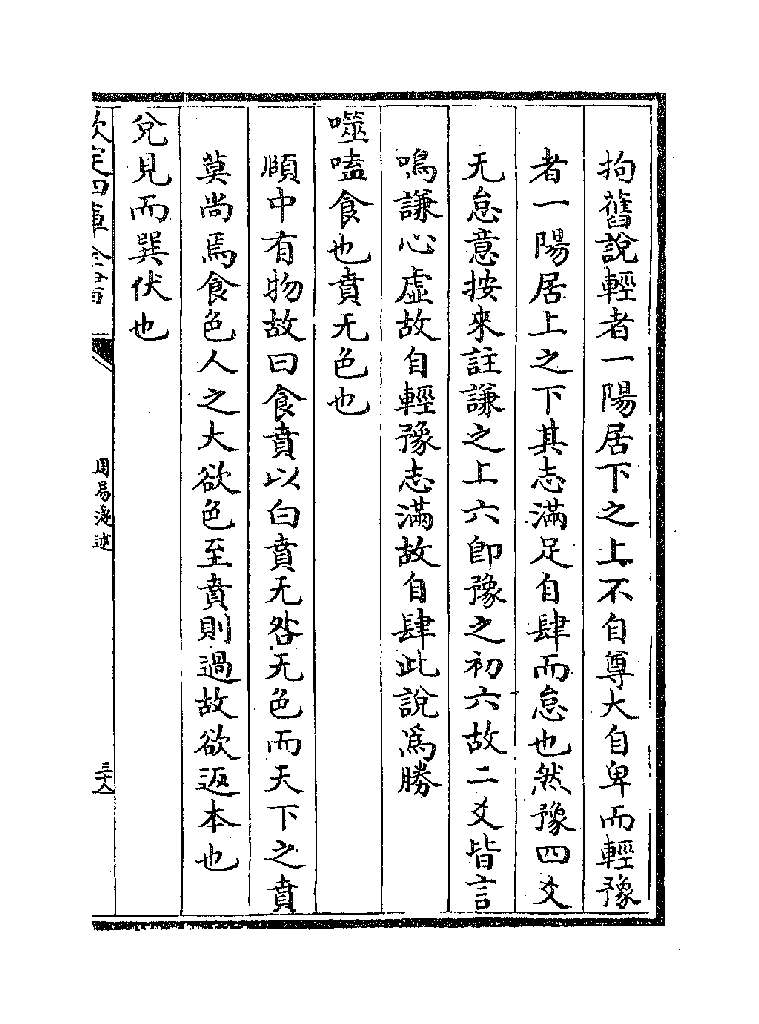 拘舊說輕者一陽居下之上不自尊大自卑而輕豫
者一陽居上之下其志滿足自肆而怠也然豫四爻
无怠意按來註謙之上六卽豫之初六故二爻皆言
鳴謙心虛故自輕豫志滿故自肆此說爲勝
噬嗑食也賁无色也
頤中有物故曰食賁以白賁无咎无色而天下之賁
莫尚焉食色人之大欲色至賁則過故欲返本也
兌見而巽伏也
欽定四庫全書
周易淺述
三十八